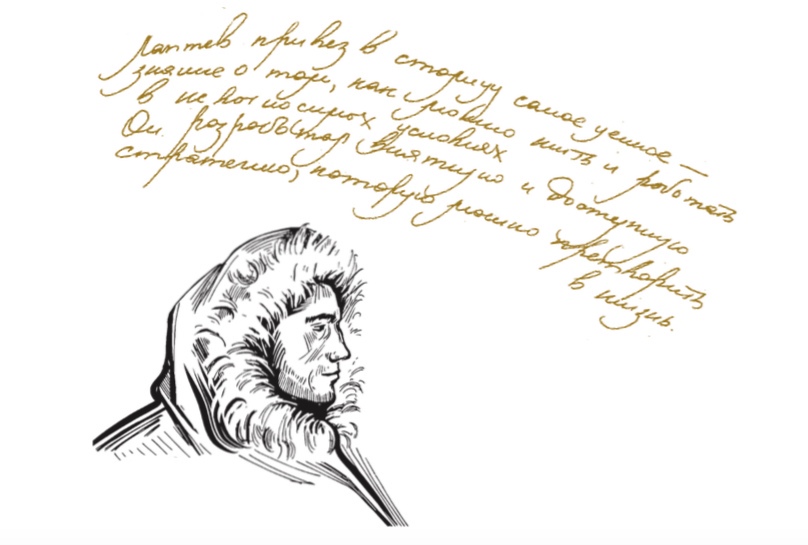 Лаптев привез в столицу самое ценное –
знание о том, как можно жить и работать
в невыносимых условиях
Он разработал внятную и доступную
стратегию, которую можно претворить
в жизнь.